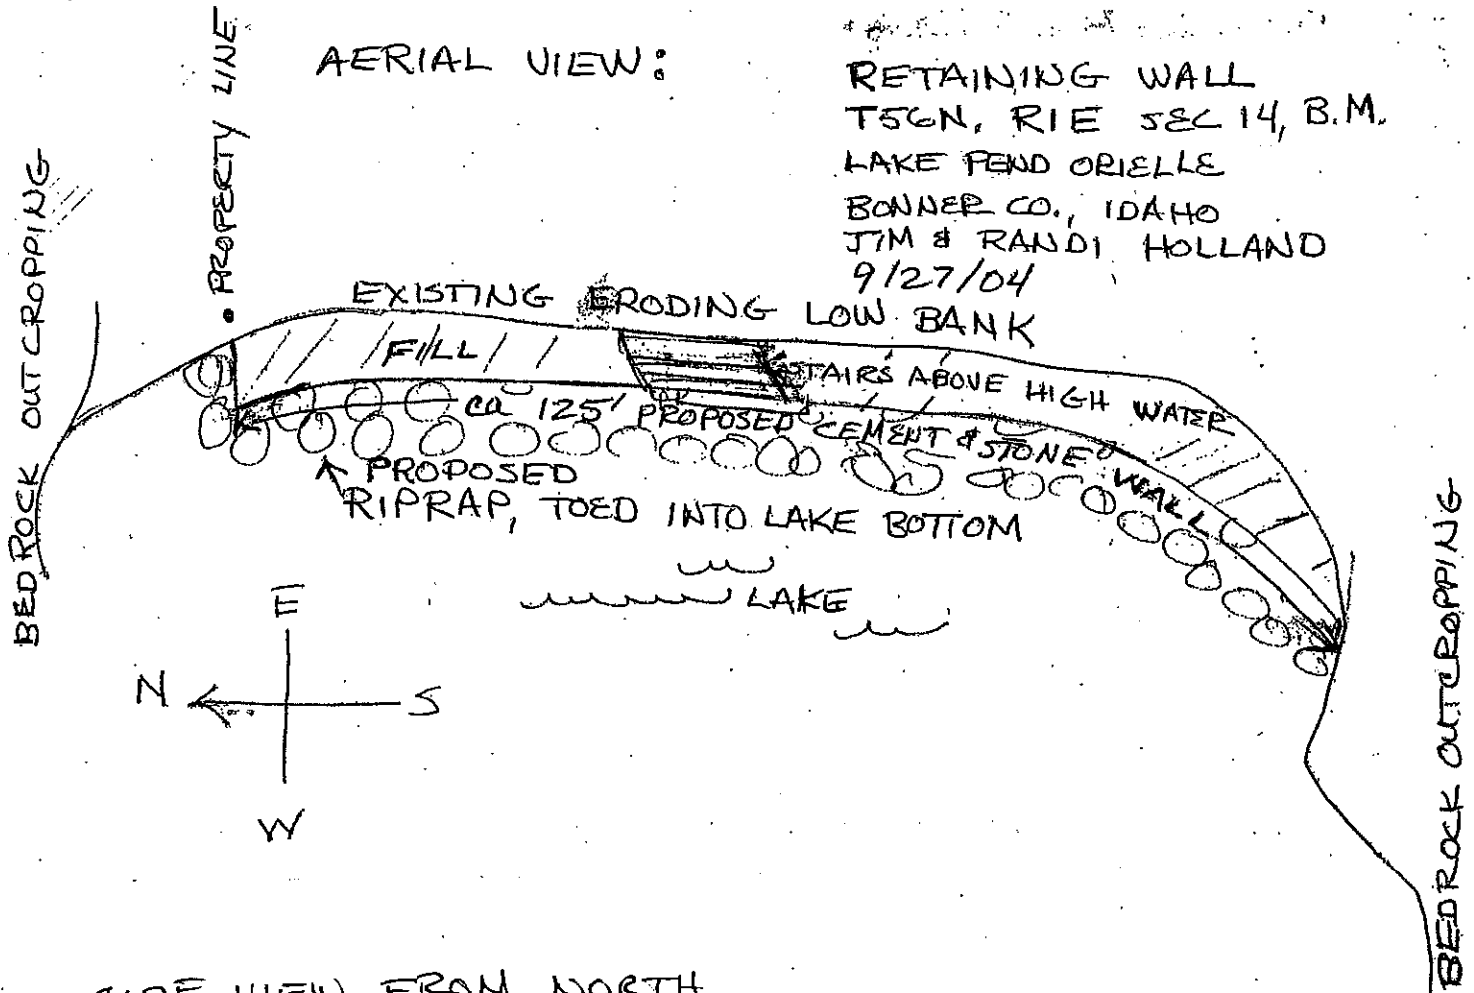 AERIAL VIEW:
RETAINING WALL
T56N, R1E SEC 14, B.M.
LAKE PEND ORIELLE
BONNER CO., IDAHO
JIM & RANDI HOLLAND
9/27/04
PROPERTY LINE
BEDROCK OUTCROPPING
EXISTING ERODING LOW BANK
FILL
STAIRS ABOVE HIGH WATER
ca 125' PROPOSED CEMENT & STONE WALL
PROPOSED
RIPRAP, TOED INTO LAKE BOTTOM
LAKE
E
N
S
W
BEDROCK OUTCROPPING
SIDE VIEW FROM NORTH